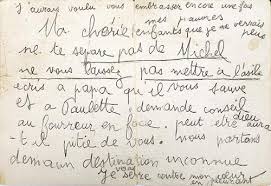 J'aurais voulu vous embrasser encore une fois
mes pauvres
Ma chérie enfants que je ne verrais
plus
ne te sépare pas de Michel
ne vous laissez pas mettre à l'asile
écris à papa qu'il vous sauve
et à Paulette, demande conseil
au fourreur en face. peut être dieu
aura
t-il pitié de vous. nous partons
demain destination inconnue
vous
Je serre contre mon cœur
en pleurant